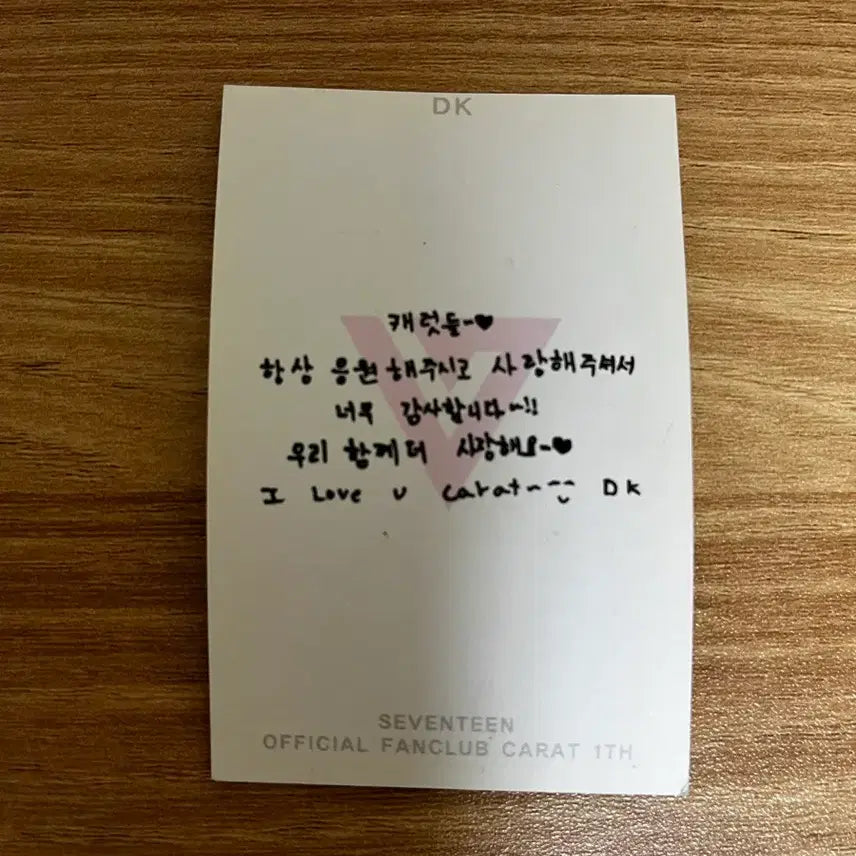 DK
캐럿들~♥
항상 응원해주시고 사랑해주셔서
너무 감사합니다~!!
우리 함께더 시장해요~♥
I Love U Carat~^^ DK
SEVENTEEN
OFFICIAL FANCLUB CARAT 1TH